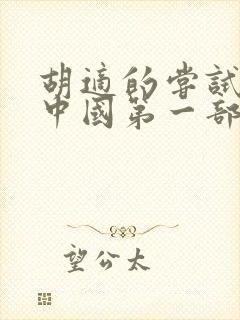 胡適的嘗試
中國第一部
望公太